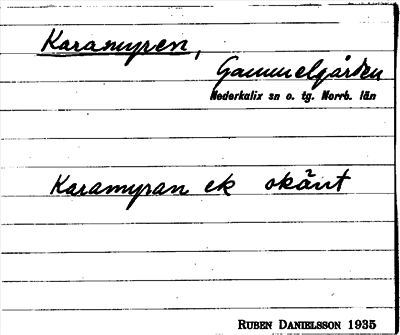 Karamyren,
Gammelgården
Nederkalix sn o. tg. Norrb. län
Karamyran ek okänt
RUBEN DANIELSSON 1935